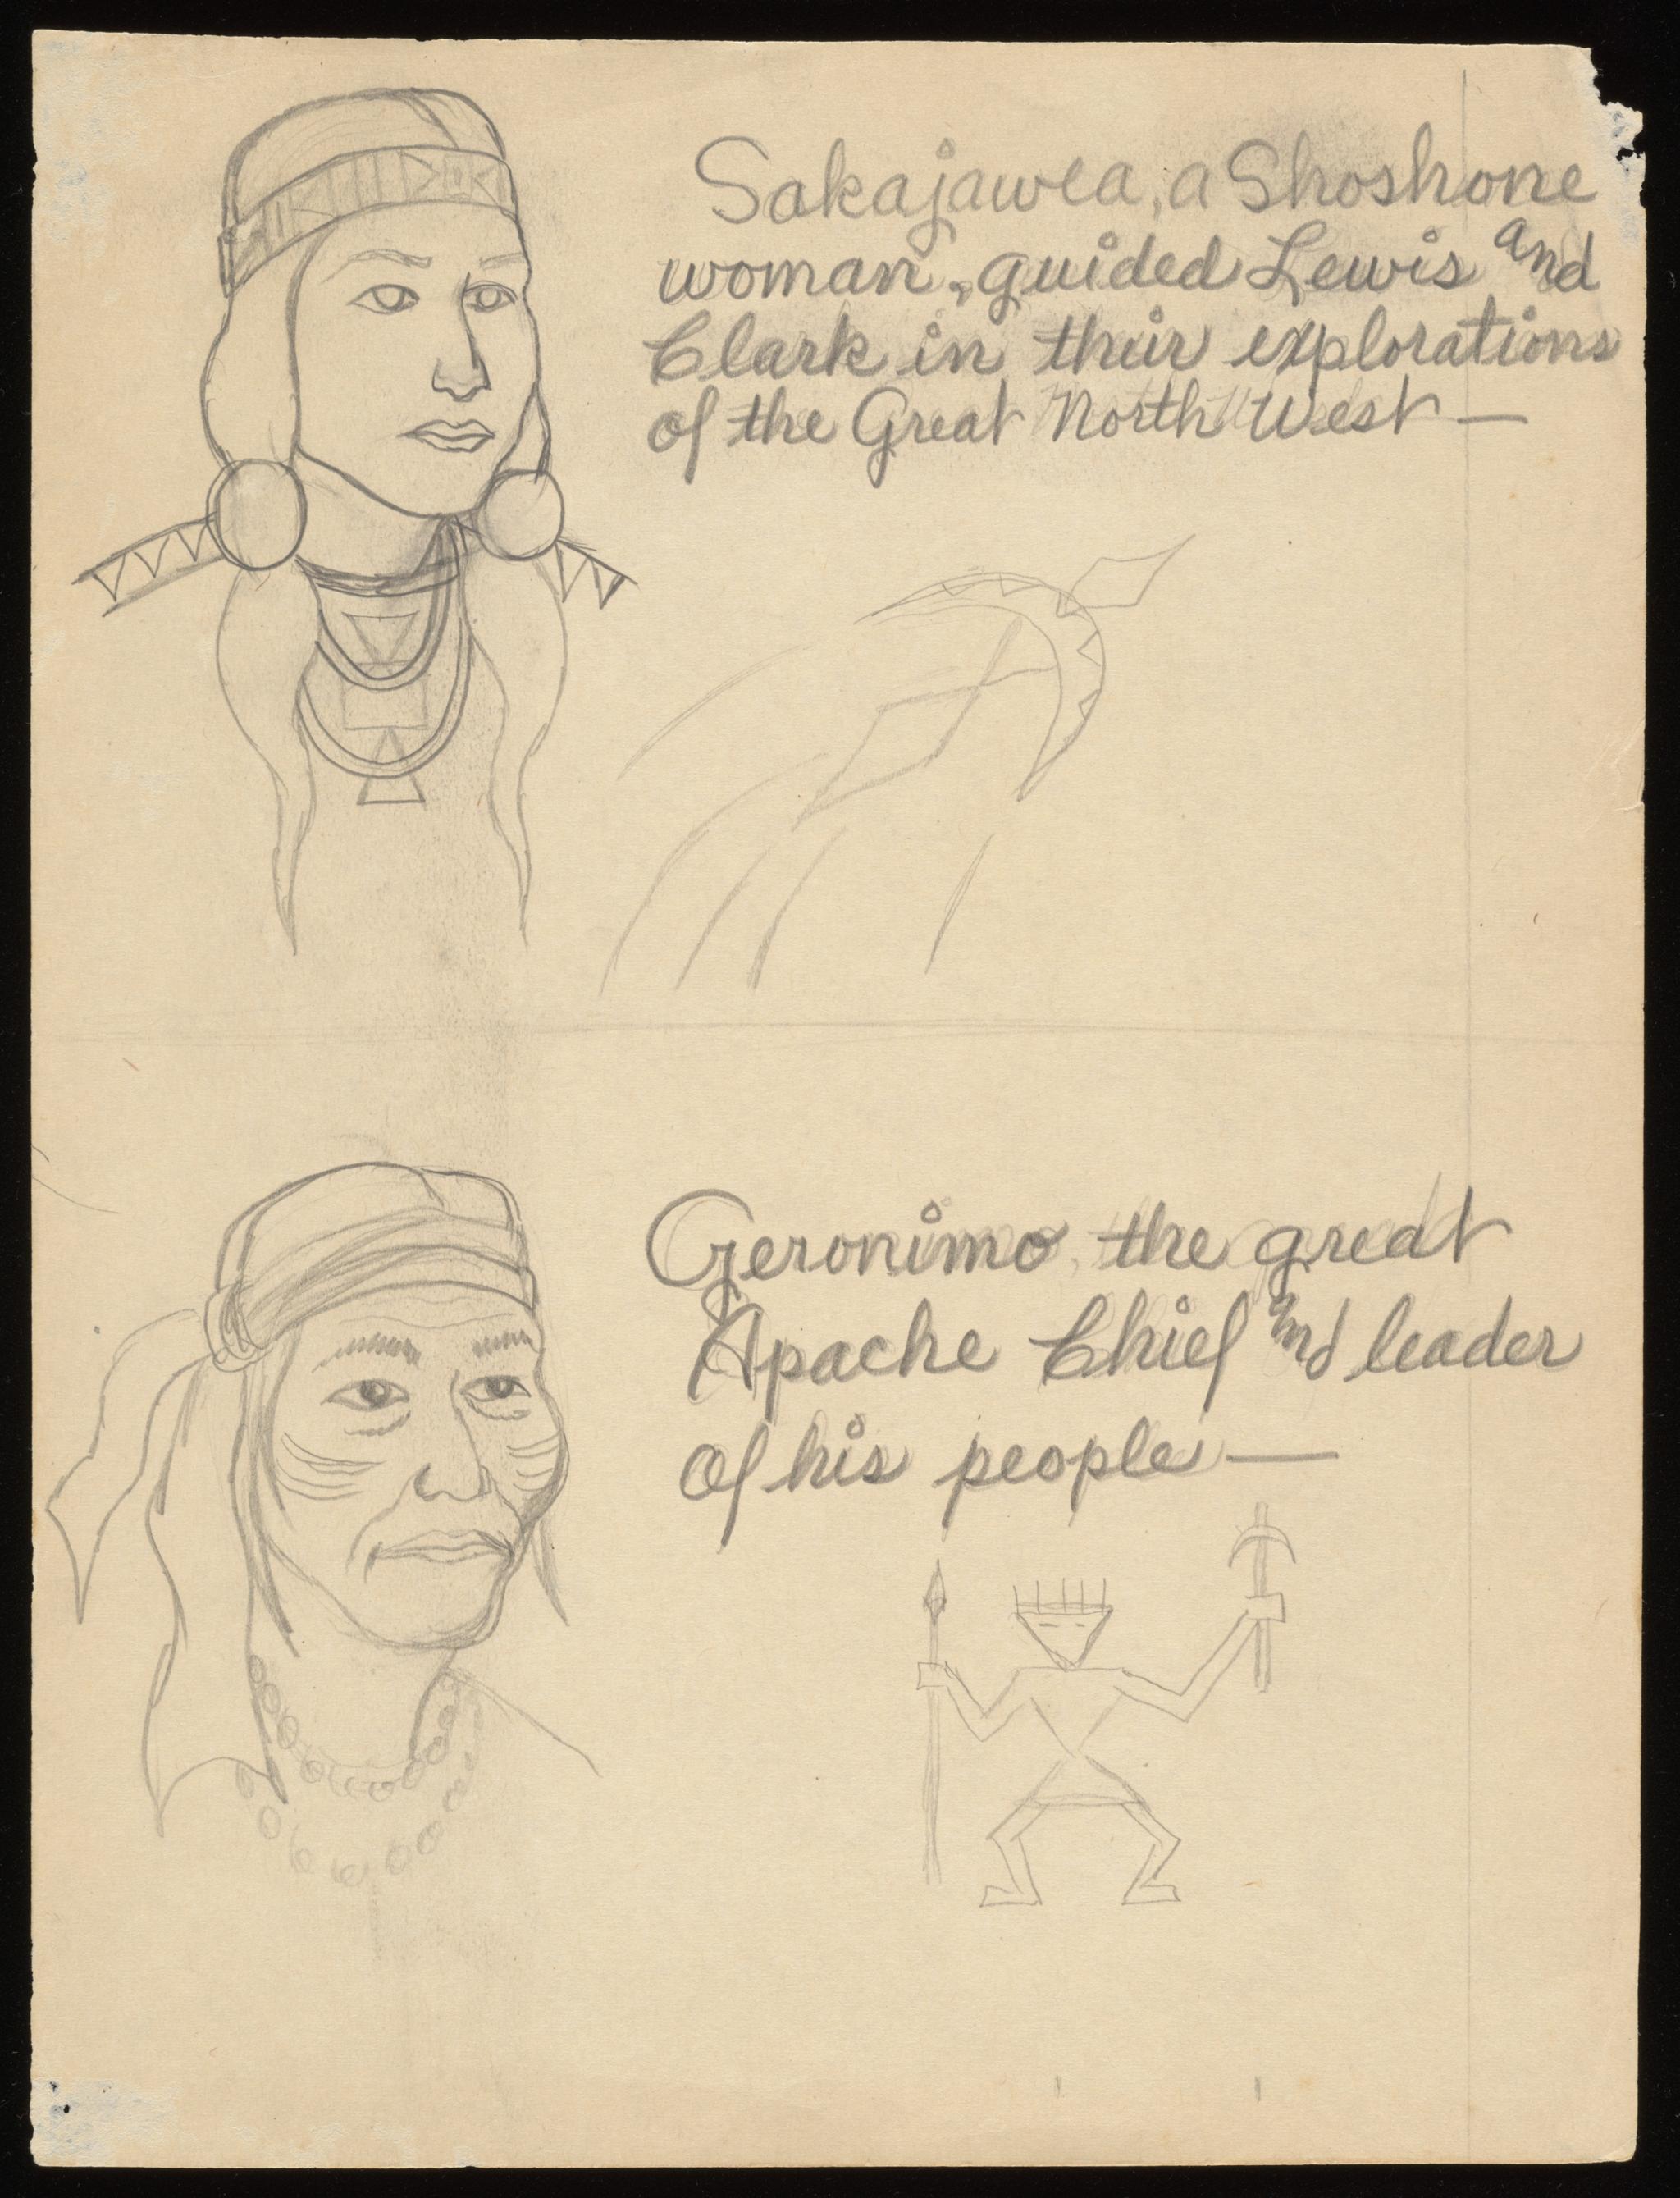 Sakajawea, a Shoshone
woman, guided Lewis and
Clark in their explorations
of the Great North West —
Geronimo, the great
Apache Chief and leader
of his people —